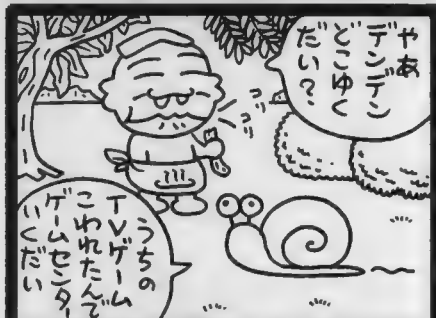 やあ
デンデン
どこゆく
だい？
コリ
コリ
うちの
TVゲーム
こわれたんで
ゲームセンター
いくだい